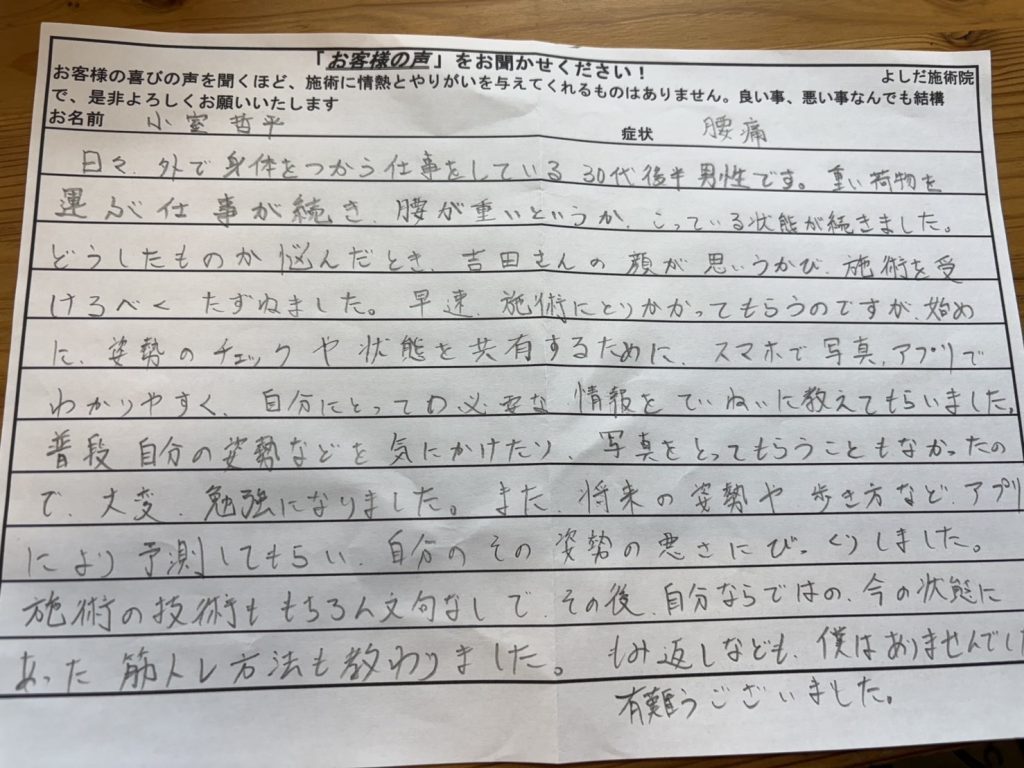 「お客様の声」をお聞かせください！
よしだ施術院
お客様の喜びの声を聞くほど、施術に情熱とやりがいを与えてくれるものはありません。良い事、悪い事なんでも結構
で、是非よろしくお願いいたします
お名前 小室哲平 症状 腰痛
日々、外で身体をつかう仕事をしている30代後半男性です。重い荷物を
運ぶ仕事が続き、腰が重いというか、こっている状態が続きました。
どうしたものか悩んだとき、吉田さんの顔が思いうかび、施術を受
けるべくたずねました。早速、施術にとりかかってもらうのですが、始め
に、姿勢のチェックや状態を共有するために、スマホで写真、アプリで
わかりやすく、自分にとっての必要な情報をていねいに教えてもらいました。
普段自分の姿勢などを気にかけたり、写真をとってもらうこともなかったの
で、大変、勉強になりました。また、将来の姿勢や歩き方など、アプリ
により予測してもらい、自分のその姿勢の悪さにびっくりしました。
施術の技術ももちろん文句なしで、その後、自分ならではの、今の状態に
あった筋トレ方法も教わりました。もみ返しなども、僕はありませんでした
有難うございました。